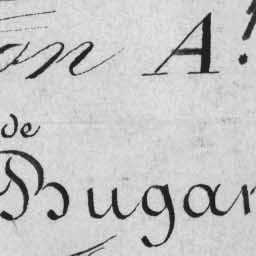 on A.
de
Bugar